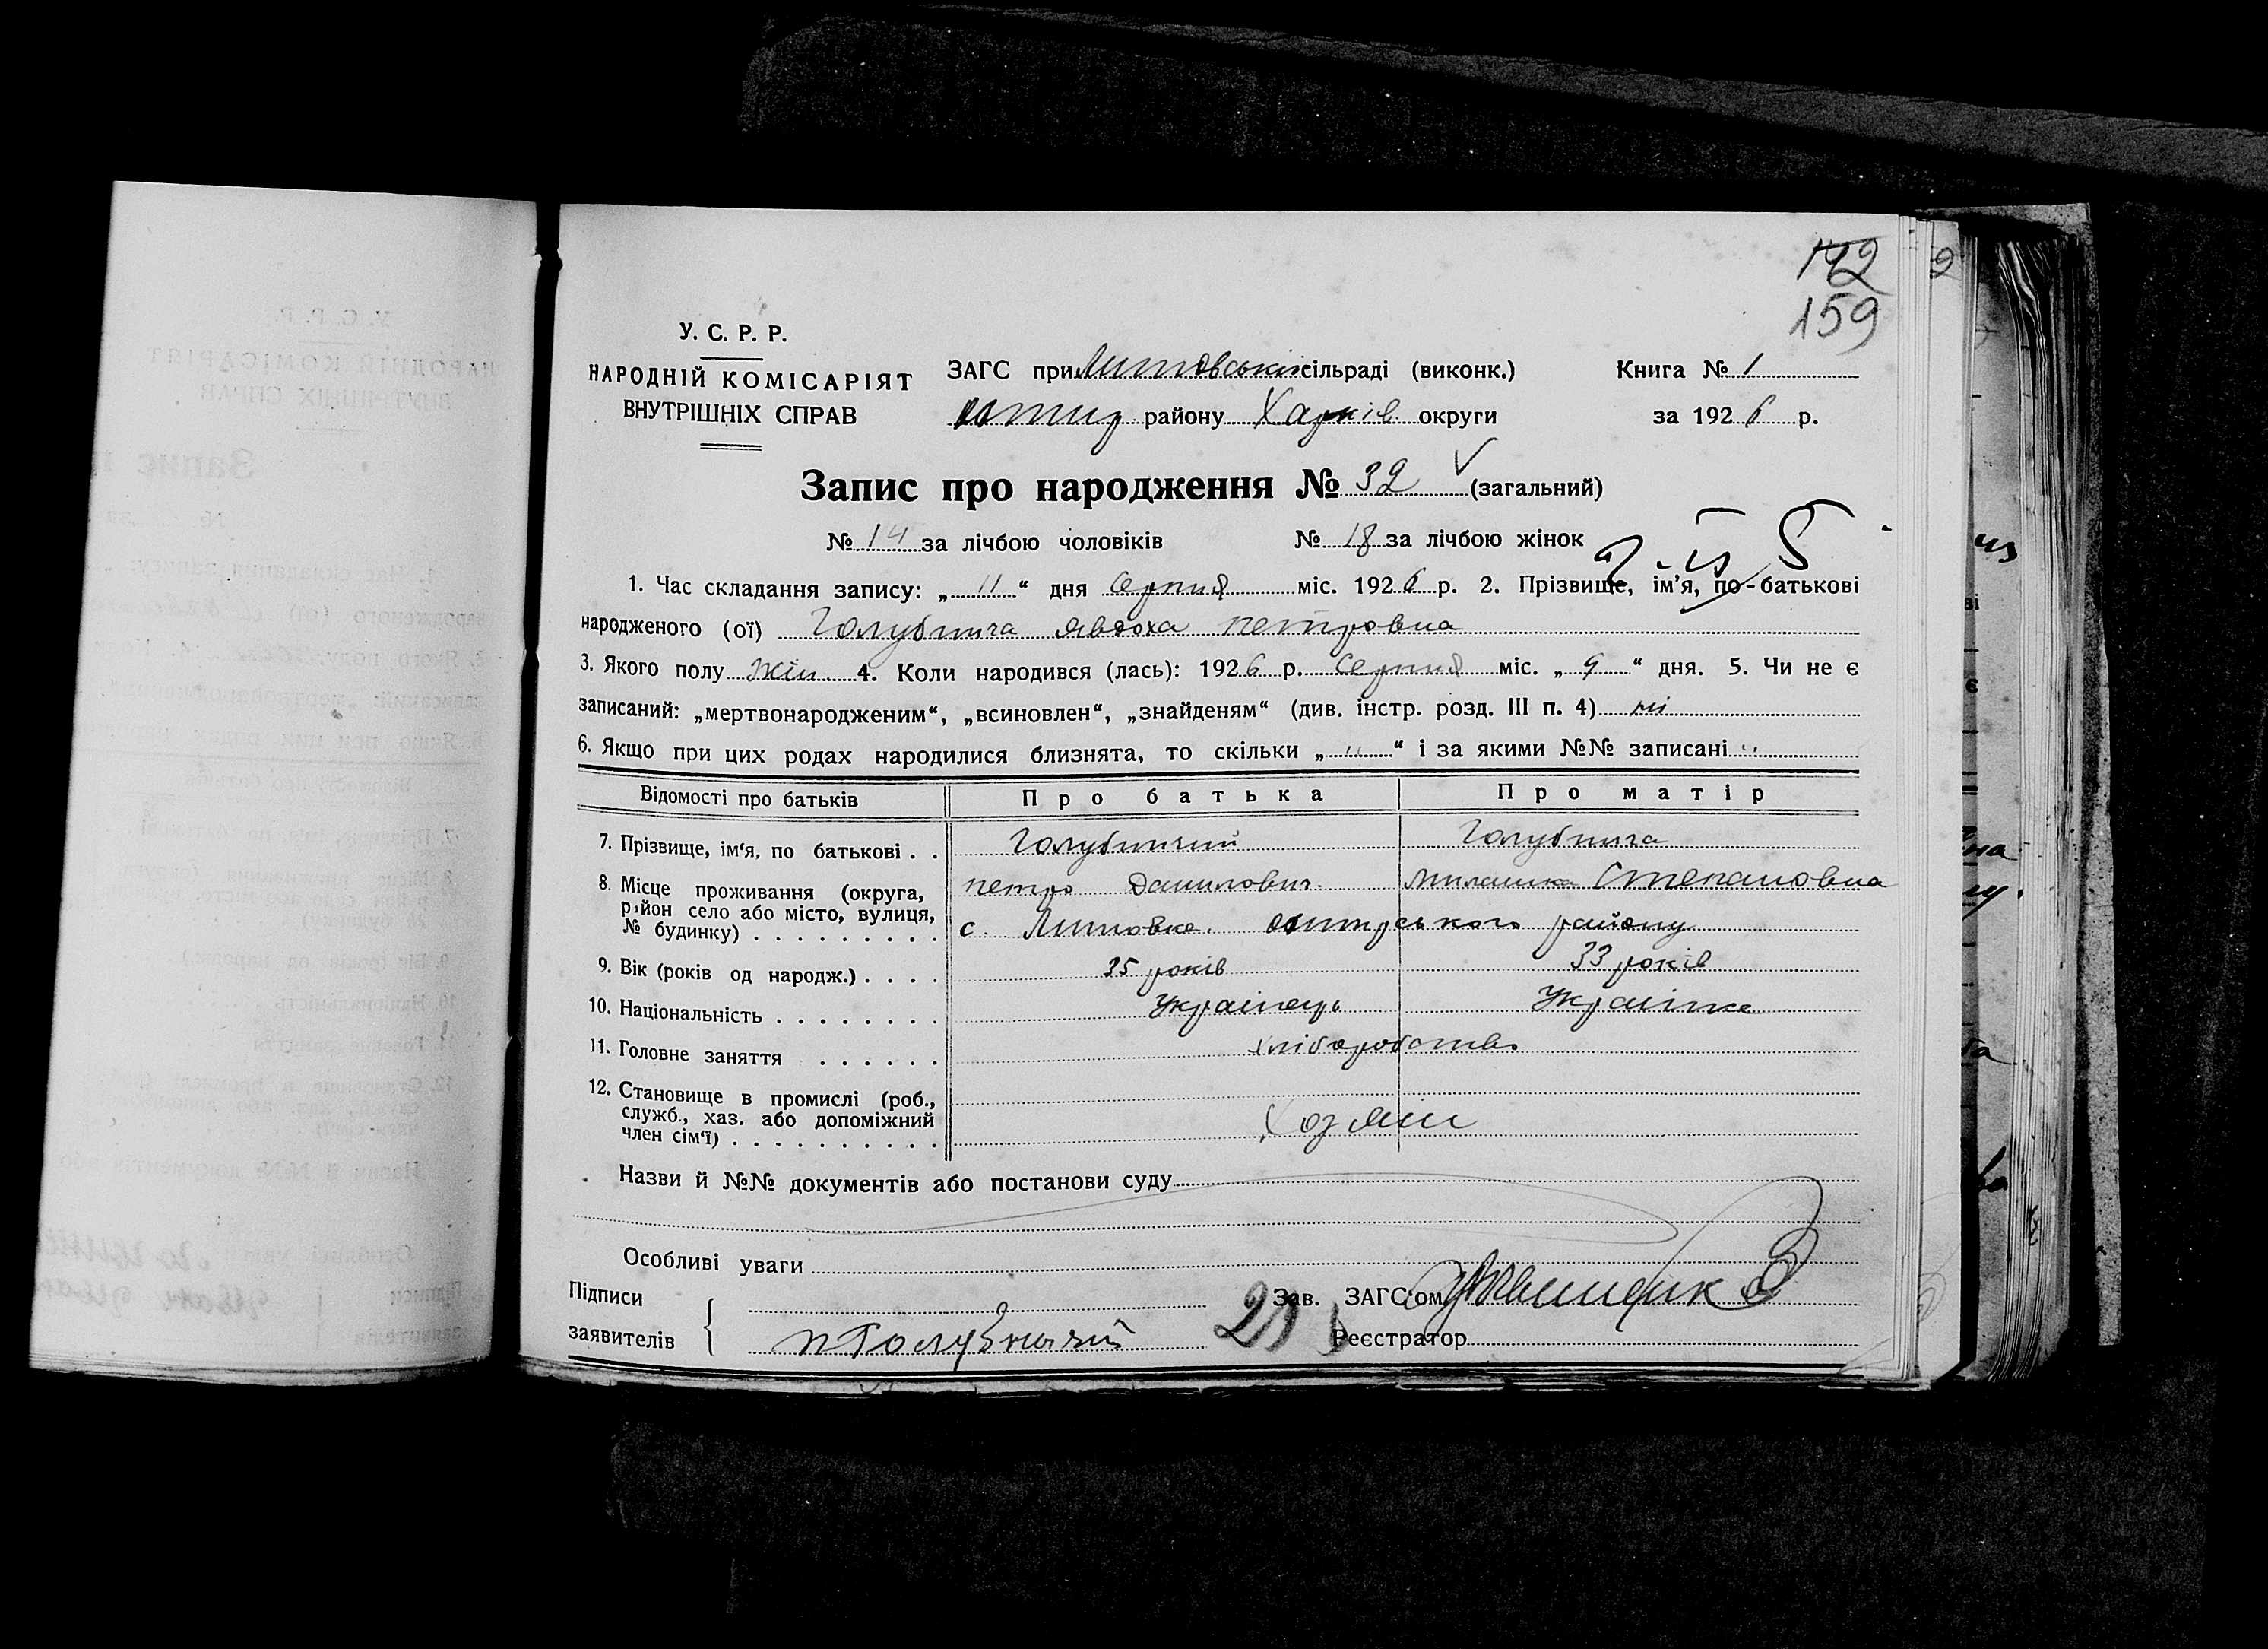 142
159
У. С. Р. Р.
НАРОДНІЙ КОМІСАРІЯТ
ВНУТРІШНІХ СПРАВ
ЗАГС при Литовській сільраді (виконк.)
району Харків округи
Книга № 1
за 1926 р.
Запис про народження № 32 (загальний)
№ 14 за лічбою чоловіків № 18 за лічбою жінок
1. Час складання запису: „ 11 “ дня серпня міс. 1926 р. 2. Прізвище, ім’я, по-батькові
народженого (ої) Голубнича Явдоха Петровна
3. Якого полу жін. 4. Коли народився (лась): 1926 р. серпня міс. „ 9 “ дня. 5. Чи не є
записаний: „мертвонародженим“, „всиновлен“, „знайденям“ (див. інстр. розд. III п. 4) ні
6. Якщо при цих родах народилися близнята, то скільки „ " “ і за якими №№ записані "
Відомості про батьків Про батька Про матір
7. Прізвище, ім‘я, по батькові . . Голубничий Голубнича
Петро Данилович Милашка Степановна
8. Місце проживання (округа, район село або місто, вулиця, № будинку) . . . . . . . . . с. Литовка району
9. Вік (років од народж.) . . . . 35 років 33 років
10. Національність . . . . . . . . Українець Українка
11. Головне заняття . . . . . . хліборобство
12. Становище в промислі (роб., служб., хаз. або допоміжний член сім‘ї) . . . . . . . . . . Хозяїн
Назви й №№ документів або постанови суду
Особливі уваги
Підписи
заявителів
п Голубничий
29
Зав. ЗАГС‘ом
Реєстратор